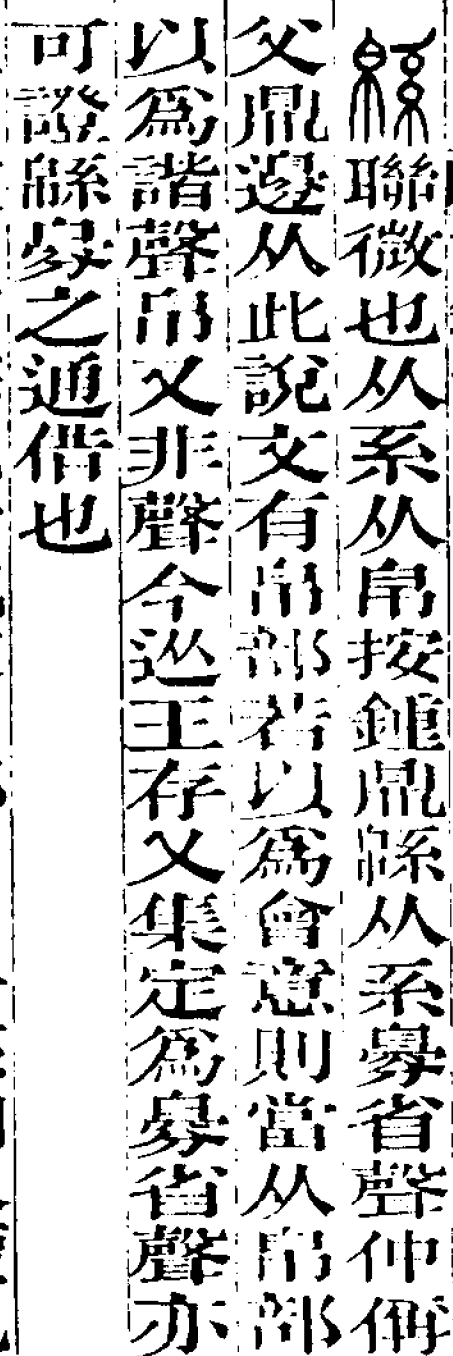 緜聯微也从系从帛按鍾鼎緜从系臱省聲仲偁
父鼎邊从此說文有帛部若以爲會意則當从帛部
以爲諧聲帛又非聲今巡王存乂集定爲臱省聲亦
可證緜臱之通借也